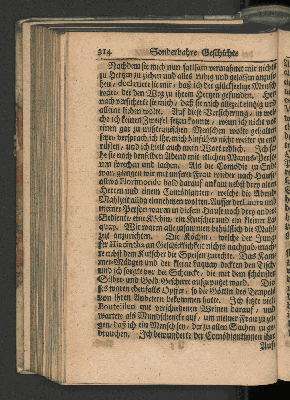 314 Sonderbahre Geschichte
Nachdem sie mich nun sattsam vermahnet mir nichts
zu Hertzen zu ziehen und alles ruhig und gelassen anzuse-
hen, declarirte sie mir, daß ich der glückseelige Mensch
wäre, der den Weg zu ihrem Hertzen gefunden. Her-
nach versicherte sie mich, daß sie mich allezeit eintzig und
alleine lieben wolte. Auf diese Versicherung, in wel-
che ich keinen Zweifel setzen konte, wenn ich nicht vor
einen gar zu mißtrauischen Menschen wolte gehalten
seyn, versprach ich ihr, mich hinführo nicht weiter zu un-
ruhigen, und ich hielt auch mein Wort redlich. Ich sa-
he sie noch denselben Abend mit etlichen Manns-Perso-
nen sprechen und lachen. Als die Comödie zu Ende
war, giengen wir mit unsern Frau wieder nach Hause,
allwo Florimonde bald darauf ankam nebst dem alten
Herren und einem Comödianten, welche die Abend-
Mahlzeit allda einnehmen wolten. Ausser der Laura und
meiner Person waren in diesem Hause noch drey andere
Bediente, eine Köchin, ein Kutscher und ein kleiner La-
quay. Wir waren alle zusammen behülflich die Mahl-
zeit anzurichten. Die Köchin, welche der Jung-
fer Jacintha an Geschicklichkeit nichts nachgab, mach-
te nebst dem Kutscher die Speisen zurechte. Das Kam-
mer-Mädgen und der kleine Laquay deckten den Tisch,
und ich sorgte vor die Schencke, die mit dem schönsten
Silber und Gold-Geschirr ausgeputzet ward. Die-
ses waren ebenfalls Opffer, so die Göttin des Tempels
von ihren Anbetern bekommen hatte. Ich setzte viel
Bouteillen mit verschiedenen Weinen darauf, und
wartete als Mundschencke auf, um meiner Frau zu zei-
gen, daß ich ein Mensch sey, der zu allen Sachen zu ge-
brauchen. Ich bewunderte der Comödiantinnen ihre
Auf-